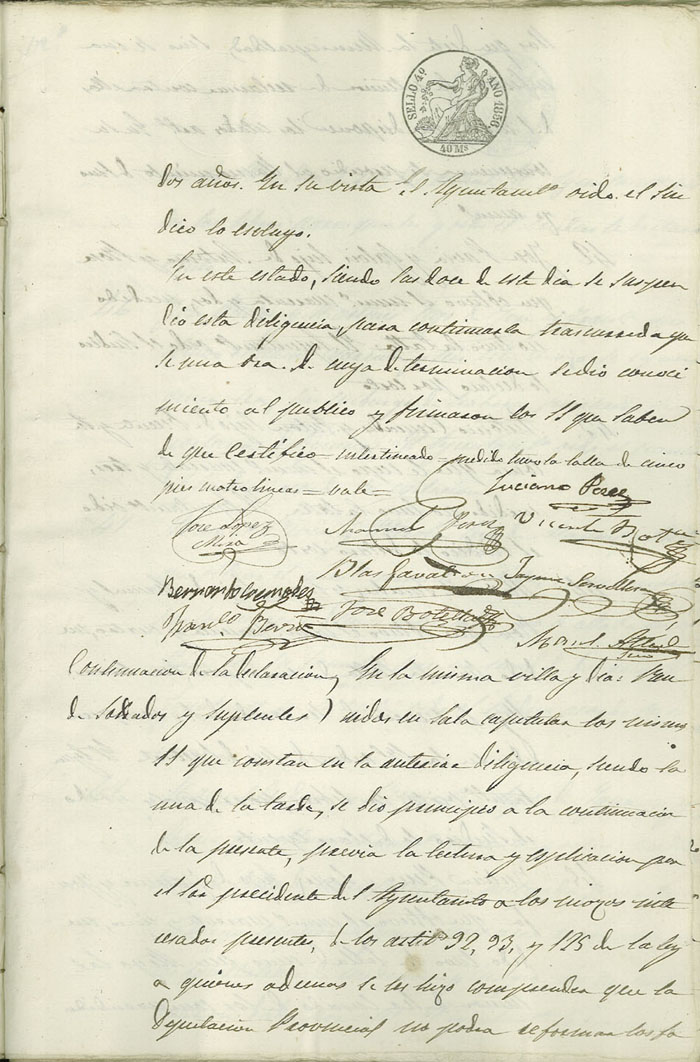 SELLO 4º AÑO 1856.
40 Ms
dos años. En su vista El Ayuntamto oido el Sin
dico lo escluyo.
En este estado, siendo las doce de este dia se suspen
dio esta diligencia, para continuarla trascurrida que
se una ora. De cuya determinacion se dio conoci
miento al publico y firmaron los SS que saben
de que Certifico = interlineado = medido tuvo la talla de cinco
pies cuatro lineas = vale =
Luciano Perez
Jose Lopez
Mira
Manuel Perez
Vicente
Blas
Jayme
Bernardo Gonzalez
Franco
Jose Botella
Continuacion de la declaracion, En la misma villa y dia: Reu
de Soldados y Suplentes) nidos en Sala capitular los mismos
SS que constan en la anterior diligencia, siendo la
una de la tarde, se dio principio a la continuacion
de la presente, previa la lectura y esplicacion por
el Sor precidente del Ayuntamto a los mozos inte
resados presentes, de los artilos 92, 93, y 125 de la ley
a quienes ademas se les hizo comprender que la
Diputacion Provincial no podra reformar los fa